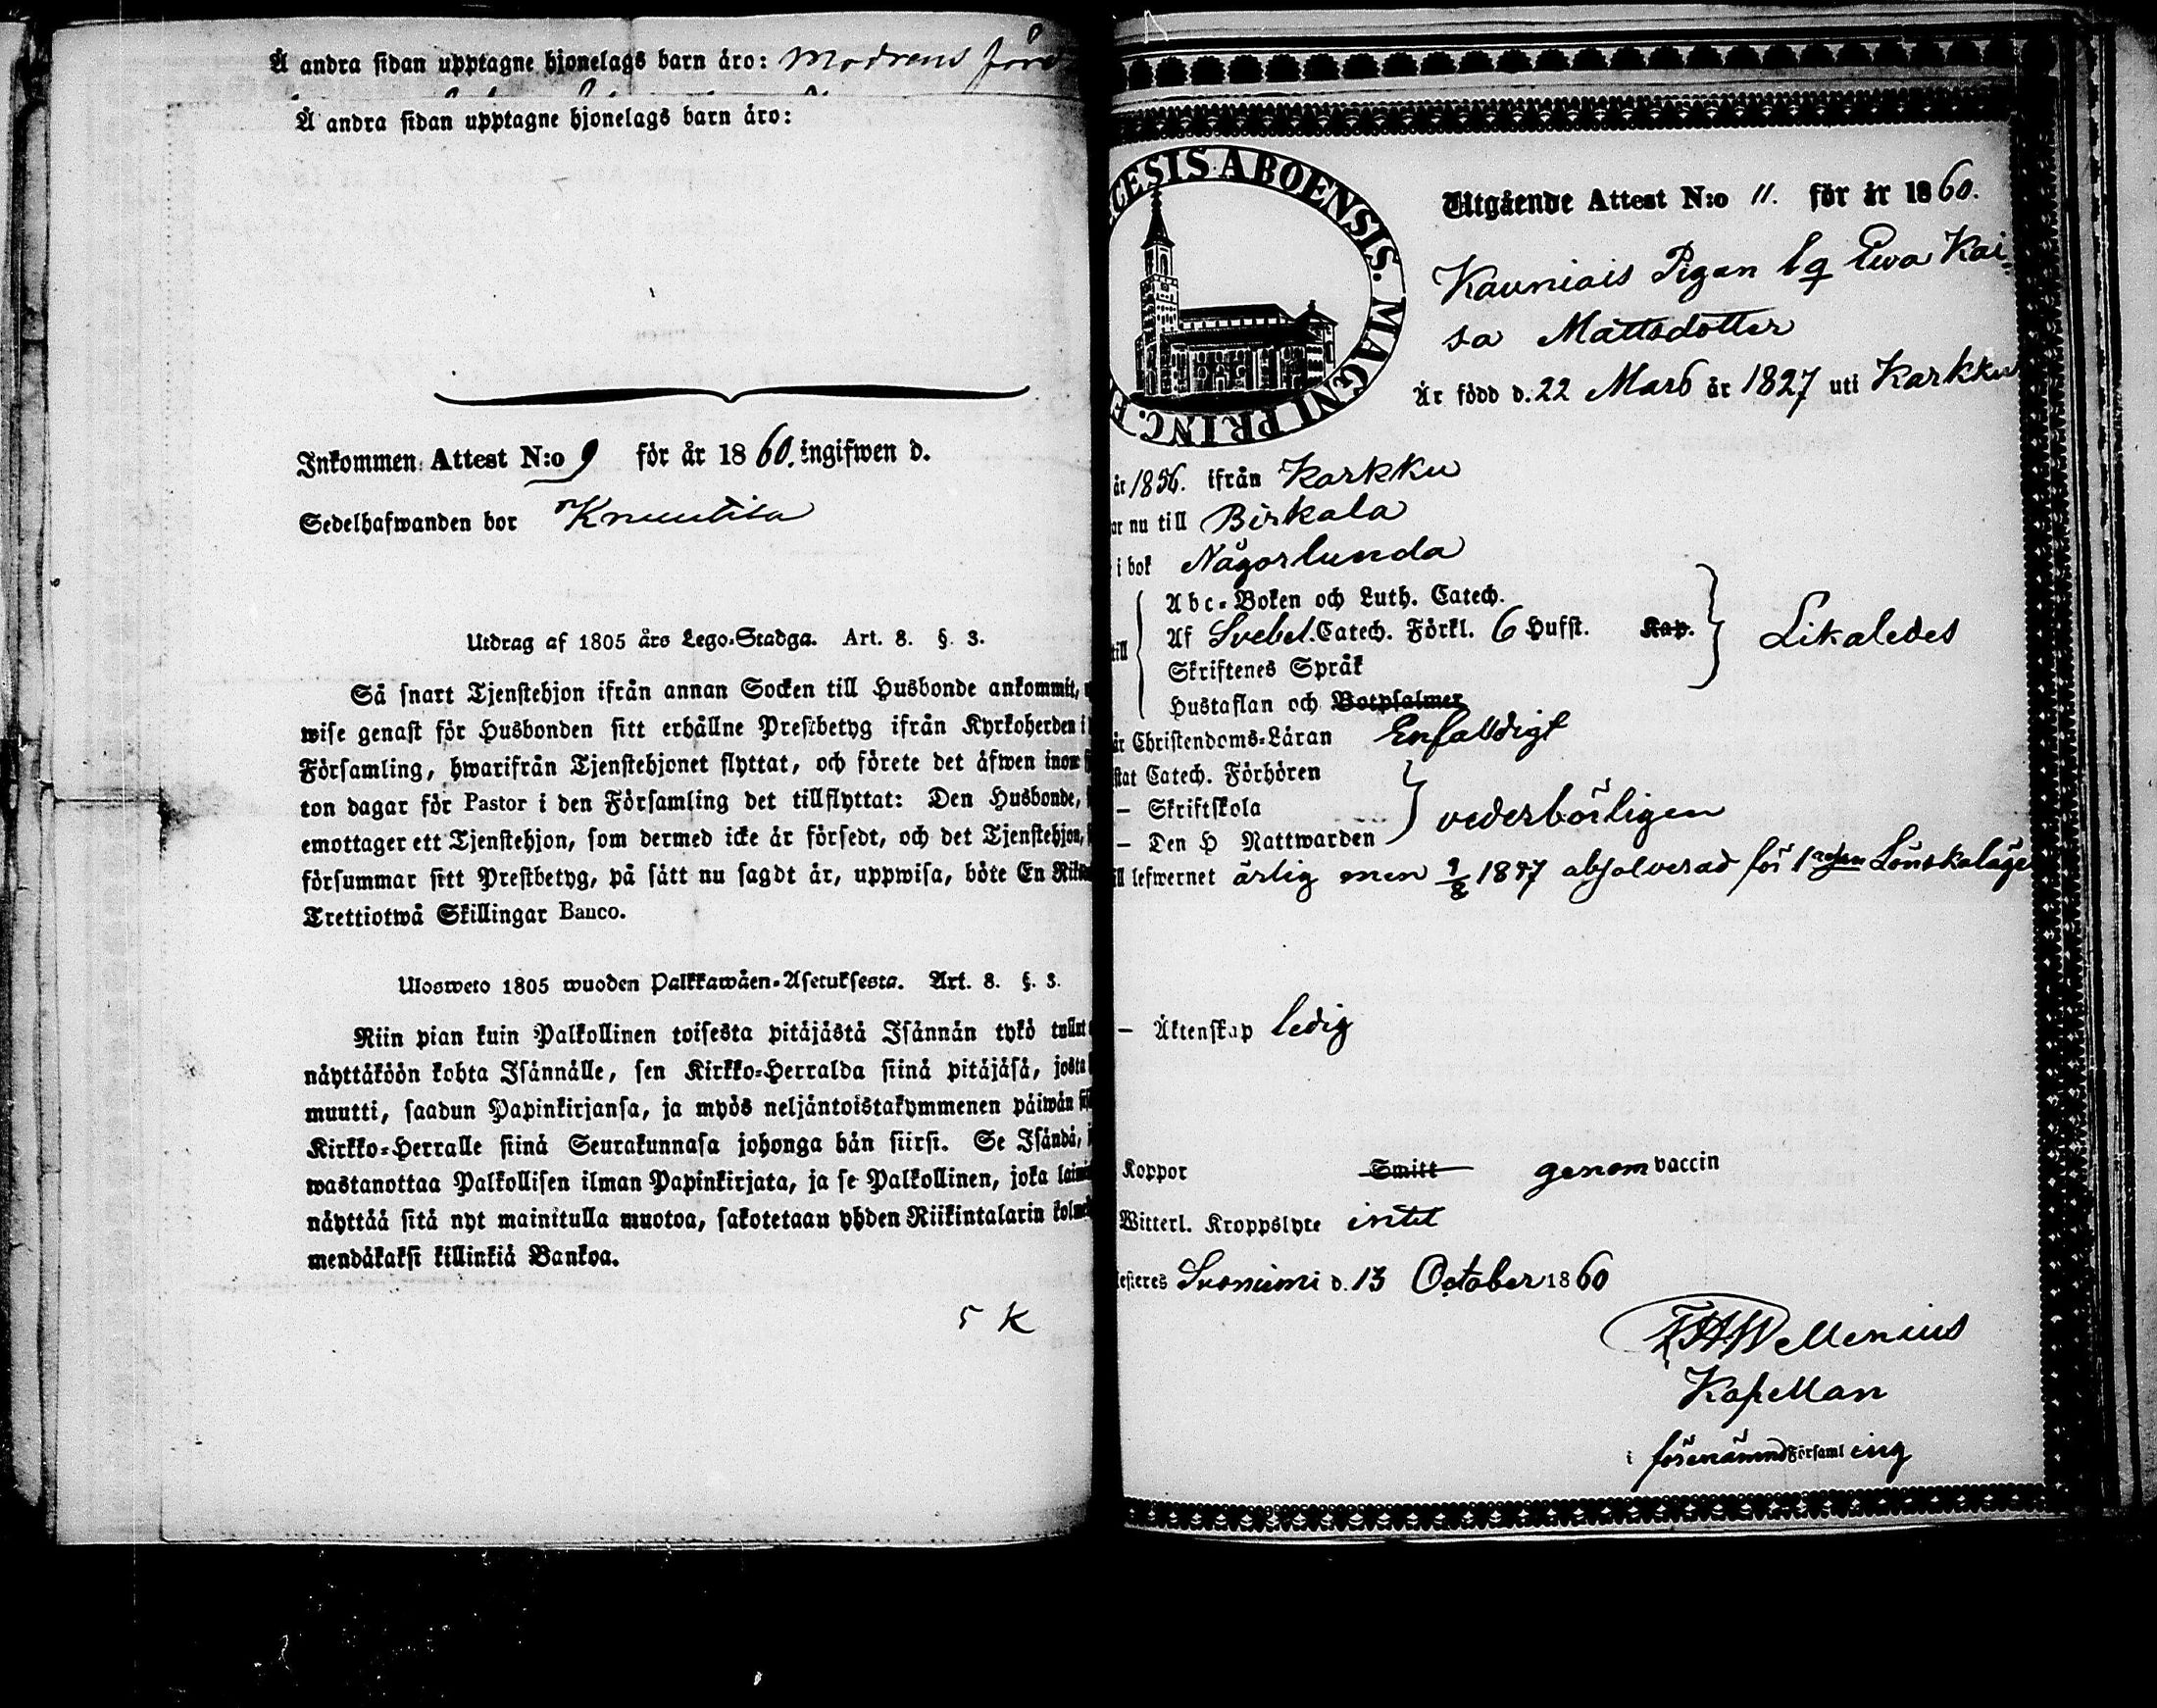 Å andra sidan upptagne hjonelags barn äro: Modrens
Å andra sidan upptagne hjonelags barn äro:
Inkommen Attest N:o 9 för år 1860. ingifwen d.
Sedelhafwanden bor Knuutila
Utdrag af 1805 års Lego-Stadga. Art. 8. §. 3.
Så snart Tjenstehjon ifrån annan Socken till Husbonde ankommit,
wise genast för Husbonden sitt erhållne Prestbetyg ifrån Kyrkoherden i
Församling, hwarifrån Tjenstehjonet flyttat, och förete det äfwen inom
ton dagar för Pastor i den Församling det tillflyttat: Den Husbonde,
emottager ett Tjenstehjon, som dermed icke är försedt, och det Tjenstehjon,
försummar sitt Prestbetyg, på sätt nu sagdt är, uppwisa, böte En
Trettiotwå Skillingar Banco.
Ulosweto 1805 wuoden Palkkawäen-Asetuksesta. Art. 8. §. 3.
Niin pian kuin Palkollinen toisesta pitäjästä Isännän tykö tullut
näyttäköön kohta Isännälle, sen Kirkko-Herralda siinä pitäjäsä, josta
muutti, saadun Papinkirjansa, ja myös neljäntoistakymmenen päiwän
Kirkko-Herralle siinä Seurakunnasa johonga hän siirsi. Se Isändä,
wastanottaa Palkollisen ilman Papinkirjata, ja se Palkollinen, joka
näyttää sitä nyt mainitulla muotoa, sakotetaan yhden Riikintalarin
mendäkaksi killinkiä Bankoa.
5 K
CESIS ABOENSIS. MAGNI PRINC.
Utgående Attest N:o 11. för år 1860.
Kauniais Pigan Eva Kai-
sa Mattsdotter
Är född d. 22 Mars år 1827 uti Karkku
år 1856. ifrån Karkku
nu till Birkala
i bok Någorlunda
Abc-Boken och Luth. Catech.
till Af Svebel. Catech. Förkl. 6 Hufst. Kap. Likaledes
Skriftenes Språk
Hustaflan och Botpsalmer
Christendoms-Läran Enfaldigt
Catech. Förhören
– Skriftskola vederbörligen
– Den H Nattwarden
lefwernet ärlig men 9/8 1847 absolverad för 1 Lönskaläge
– Äktenskap ledig
Koppor Smitt genom vaccin
Witterl. Kroppslyte intet
Suoniemi d. 13 October 1860
Wellenius
Kapellan
i förenämnd Församling